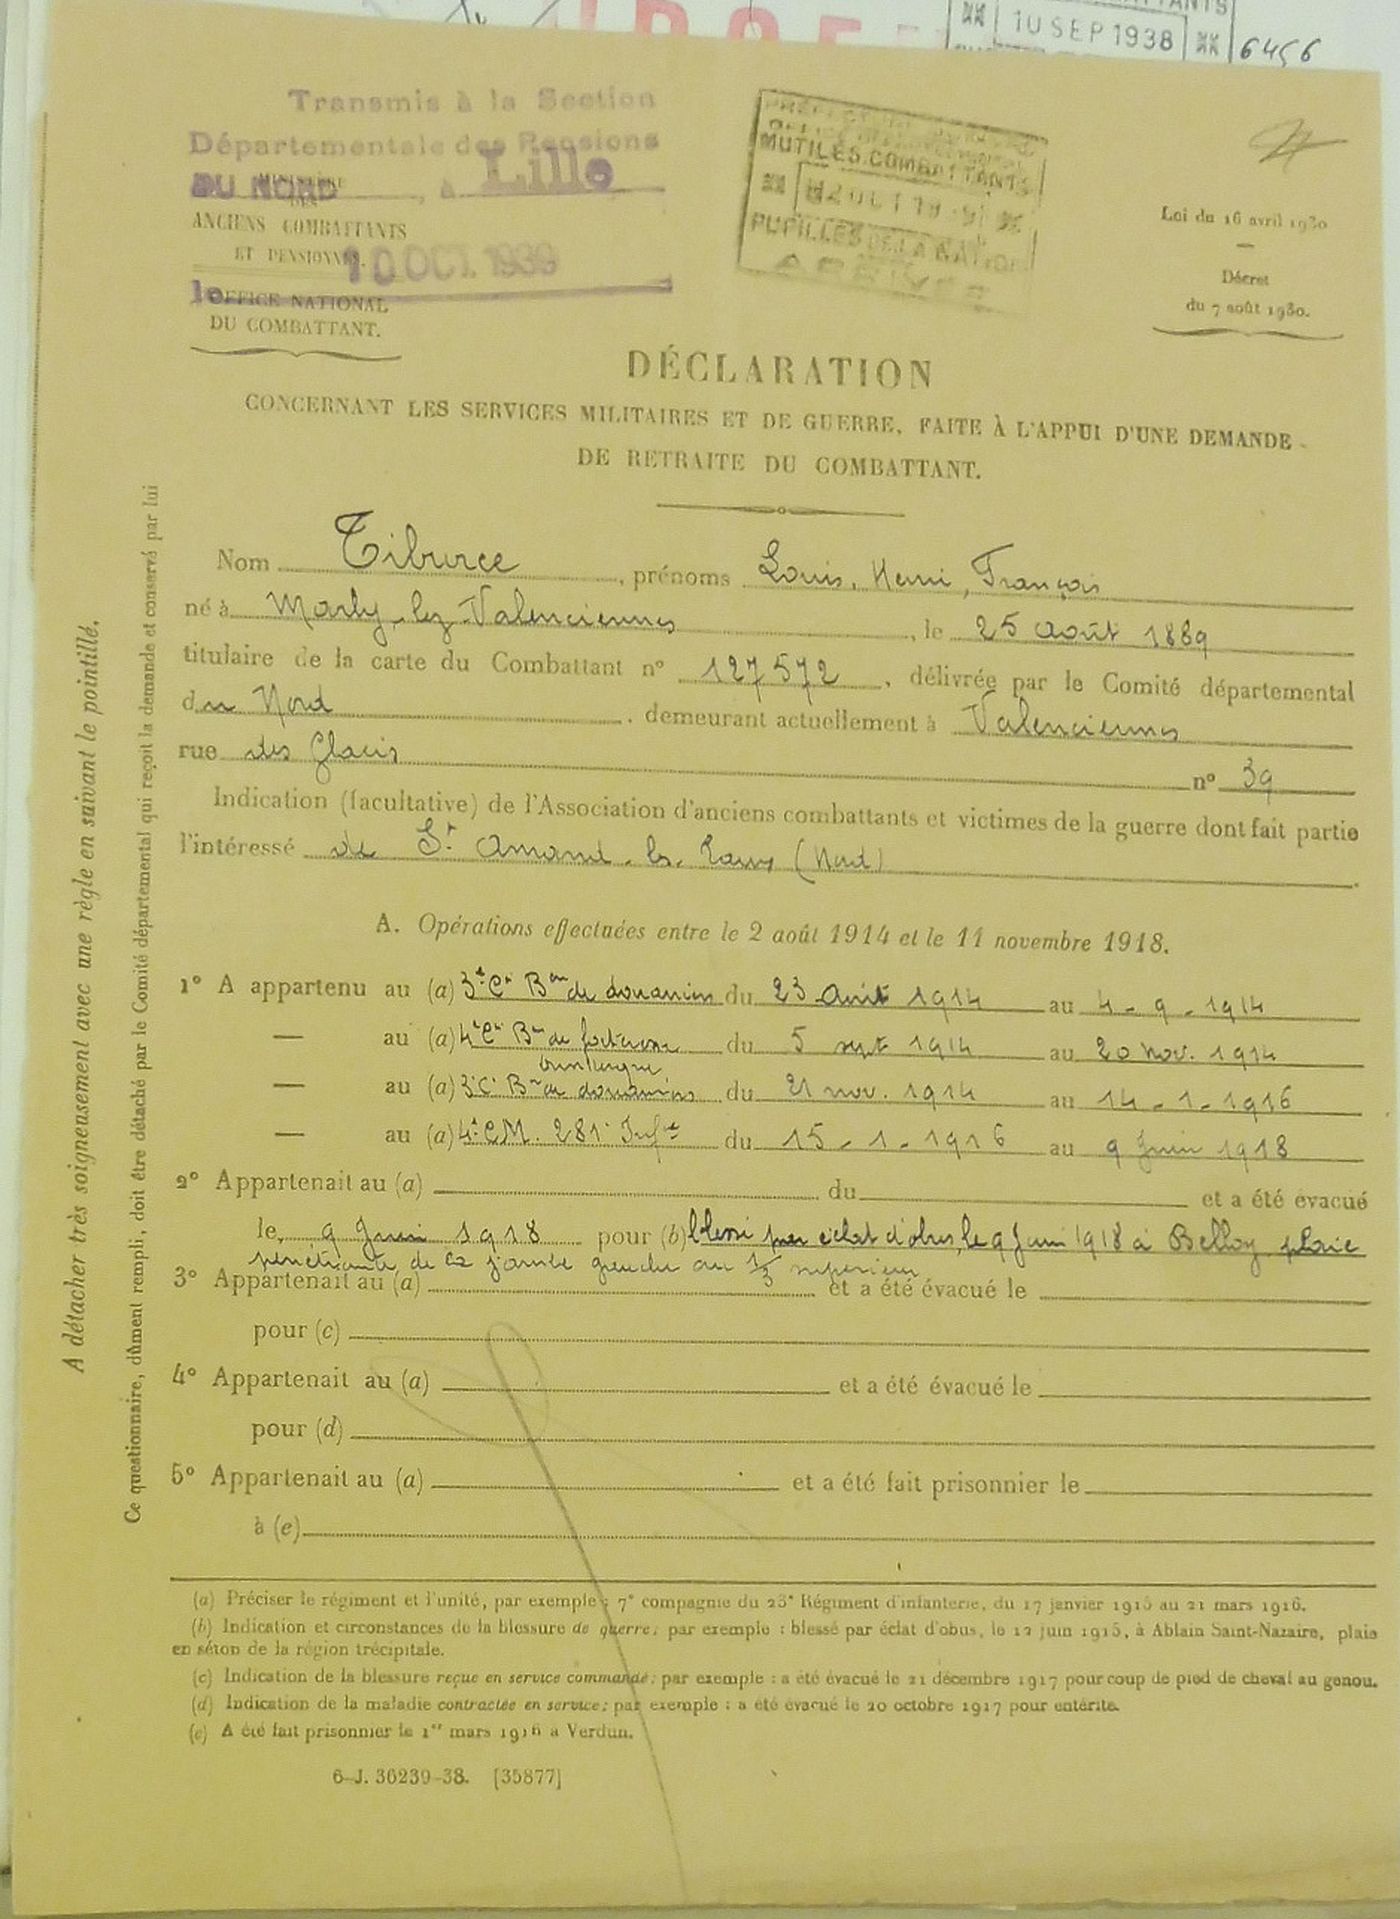 10 SEP 1938
6456
Transmis à la Section
Départementale des Pensions
DU NORD, à Lille
MINISTÈRE
DES
ANCIENS COMBATTANTS
ET PENSIONNÉS.
10 OCT. 1939
le
OFFICE NATIONAL
DU COMBATTANT.
MUTILÉS. COMBATTANTS
PUPILLES DE LA NATION
ARRIVÉE
Loi du 16 avril 1930
Décret
du 7 août 1930.
DÉCLARATION
CONCERNANT LES SERVICES MILITAIRES ET DE GUERRE, FAITE À L'APPUI D'UNE DEMANDE
DE RETRAITE DU COMBATTANT.
Nom Tiburce, prénoms Louis, Henri, François
né à Marly-lez-Valenciennes, le 25 août 1889
titulaire de la carte du Combattant n° 127572, délivrée par le Comité départemental
du Nord, demeurant actuellement à Valenciennes
rue des Glacis n° 39
Indication (facultative) de l'Association d'anciens combattants et victimes de la guerre dont fait partie
l'intéressé de St Amand-les-Eaux (Nord)
A. Opérations effectuées entre le 2 août 1914 et le 11 novembre 1918.
1° A appartenu au (a) 3e Cie Bon de douaniers du 23 Août 1914 au 4-9-1914
— au (a) 4e Cie Bon de forteresse du 5 sept 1914 au 20 nov. 1914
Dunkerque
— au (a) 3e Cie Bon de douaniers du 21 nov. 1914 au 14-1-1916
— au (a) 4e CM. 281e Infie du 15-1-1916 au 9 Juin 1918
2° Appartenait au (a) du et a été évacué
le 9 Juin 1918 pour (b) blessé par éclat d'obus, le 9 Juin 1918 à Belloy plaie
pénétrante de la jambe gauche au 1/3 supérieur
3° Appartenait au (a) et a été évacué le
pour (c)
4° Appartenait au (a) et a été évacué le
pour (d)
5° Appartenait au (a) et a été fait prisonnier le
à (e)
(a) Préciser le régiment et l'unité, par exemple : 7e compagnie du 23e Régiment d'infanterie, du 17 janvier 1915 au 21 mars 1916.
(b) Indication et circonstances de la blessure de guerre; par exemple : blessé par éclat d'obus, le 12 juin 1915, à Ablain Saint-Nazaire, plaie
en séton de la région trécipitale.
(c) Indication de la blessure reçue en service commandé; par exemple : a été évacué le 21 décembre 1917 pour coup de pied de cheval au genou.
(d) Indication de la maladie contractée en service; par exemple : a été évacué le 20 octobre 1917 pour entérite.
(e) A été fait prisonnier le 1er mars 1916 à Verdun.
6-J. 36239-38. [35877]
A détacher très soigneusement avec une règle en suivant le pointillé.
Ce questionnaire, dûment rempli, doit être détaché par le Comité départemental qui reçoit la demande et conservé par lui